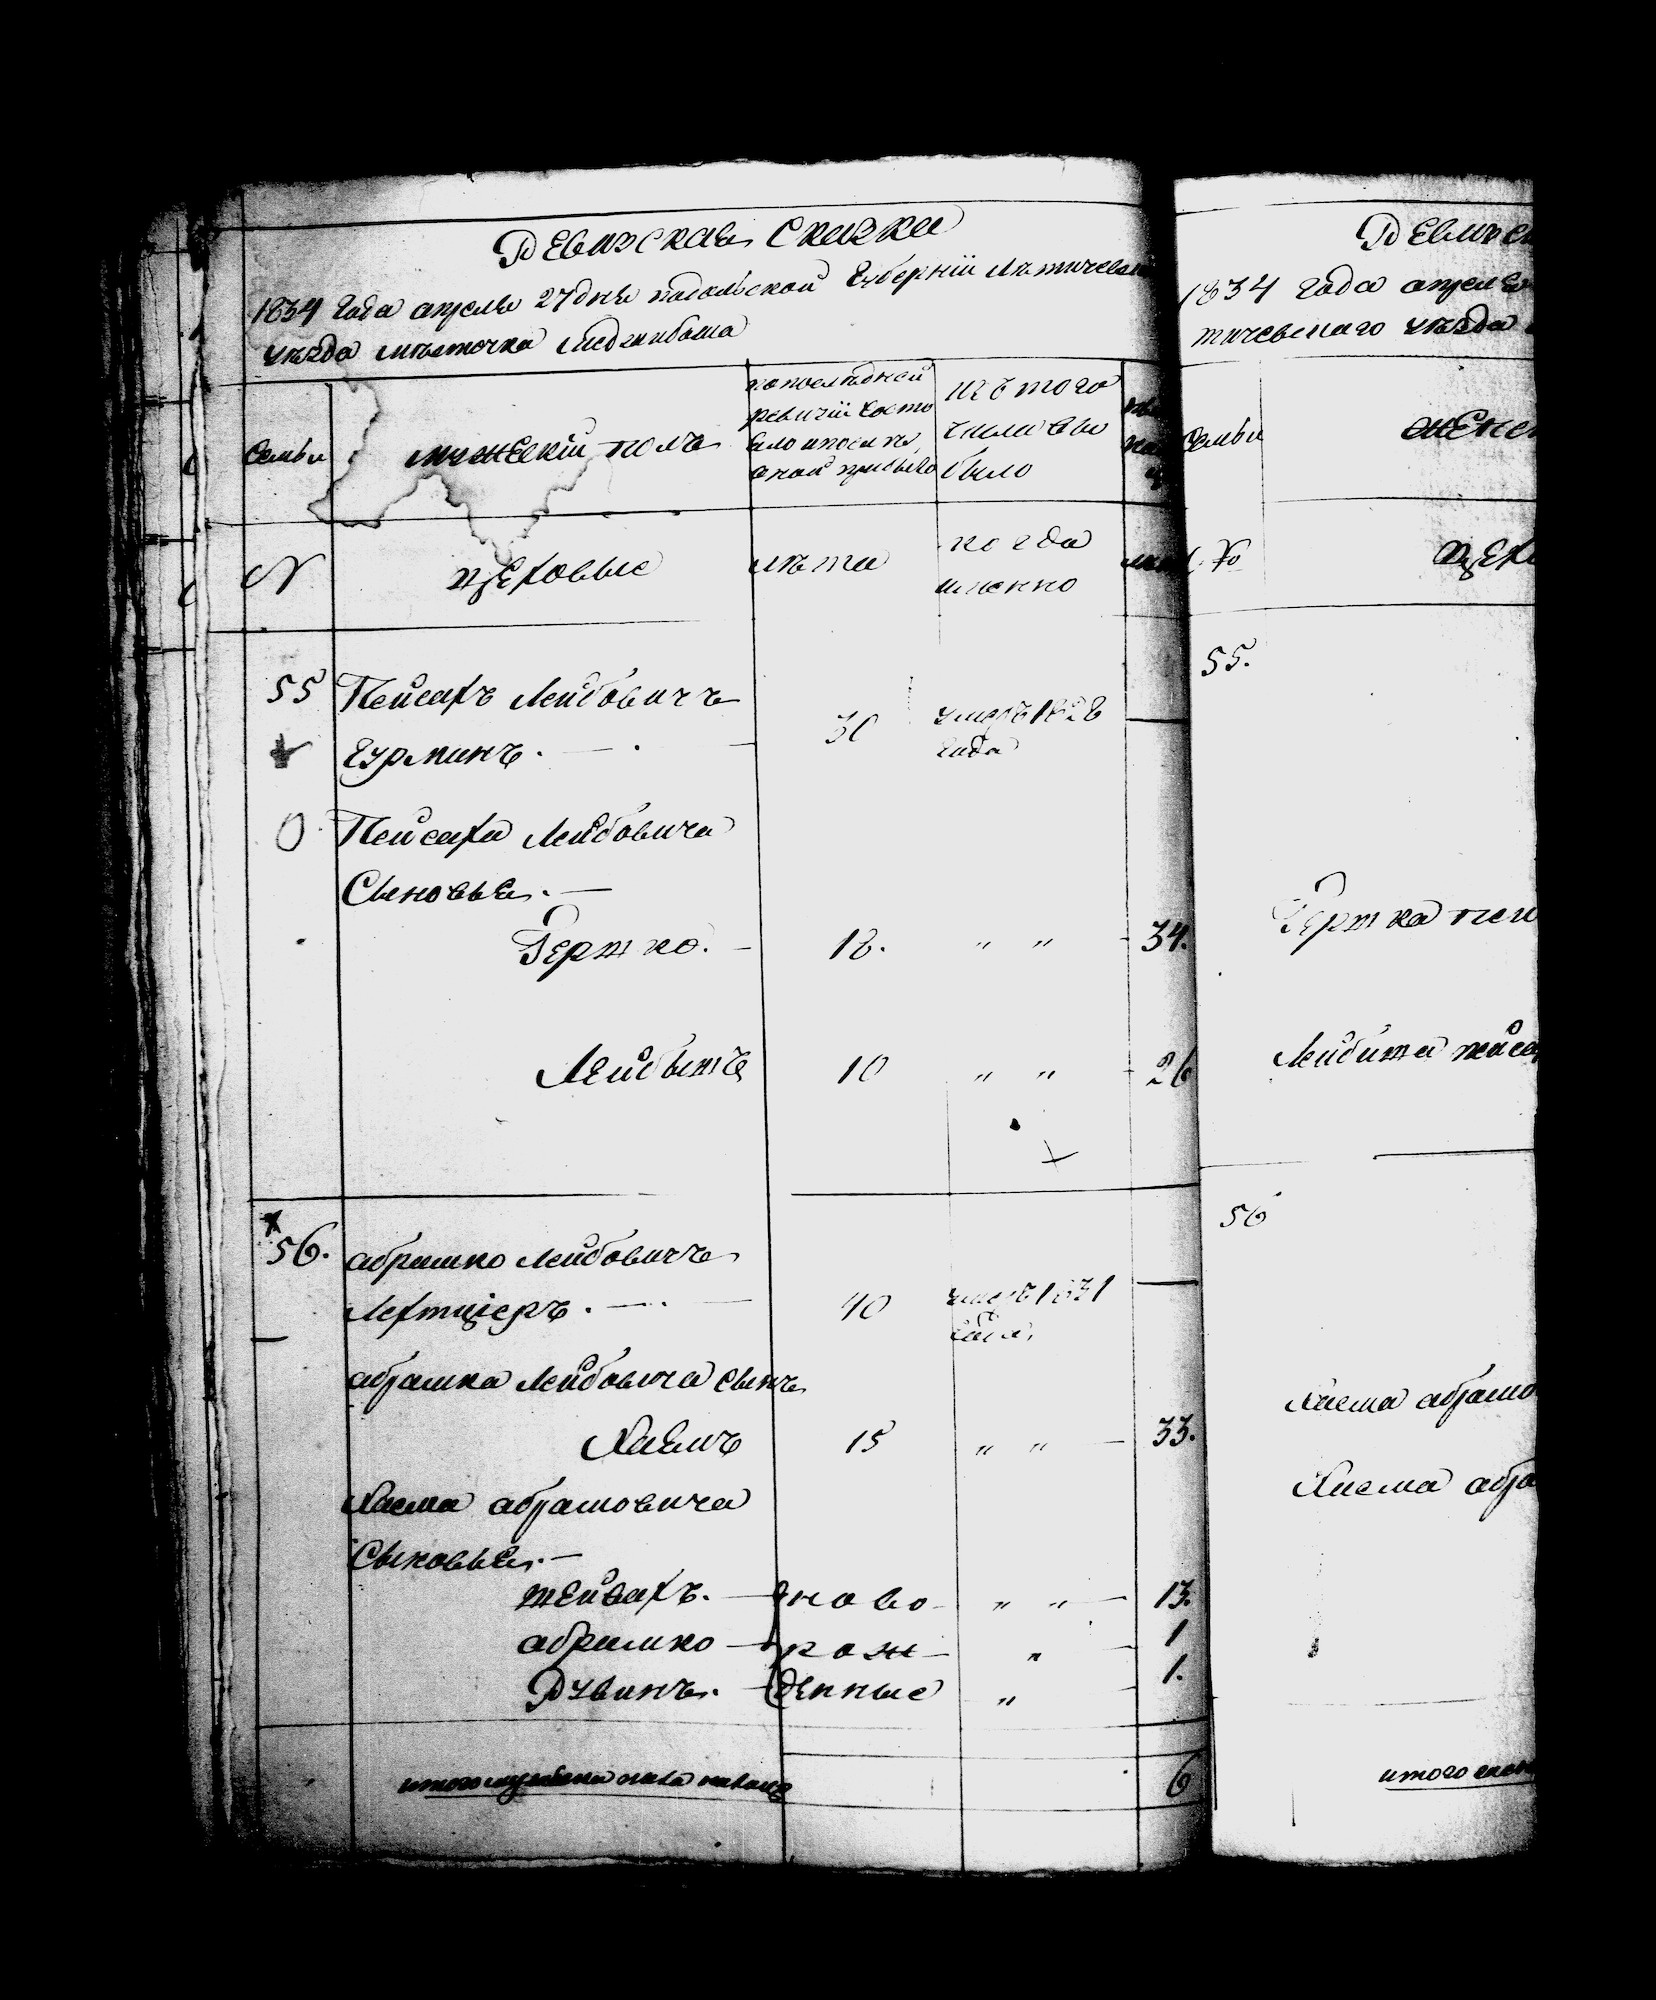 Ревизская Сказка
1834 года апреля 27 дня подольской Губерніи Летичевск
уѣзда мѣстечка Меджибожа
Семьи
мужескій полъ
по последней
ревизіи состо
яло и после
оной прибыло
изъ того
числа вы
было
N
цеховые
лѣта
когда
именно
55 Пейсахъ Лейбовичъ
Гурминъ. — . — 30 умеръ 1828
года
0 Пейсаха Лейбовича
Сыновья. —
Гершко. — 18. " " - 34.
Лейбышъ 10 " " - 26
56. абрашко Лейбовичъ
Лехтціеръ. — . — 40 умеръ 1831
года.
абрашка Лейбовича сынъ
Хаемъ 15 " " — 33.
Хаема абрамовича
Сыновья. —
пейсахъ. — ново " " — 13.
абрашко — рож " - 1
Рувинъ. — денные " - 1.
итого мужеска пола налицо 6
Ревизск
1834 года апреля
тичевскаго уѣзда
Семьи
женск
№
цехо
55.
Гершка пей
Лейбиша пейса
56
Хаема абрамо
Хаема абра
итого